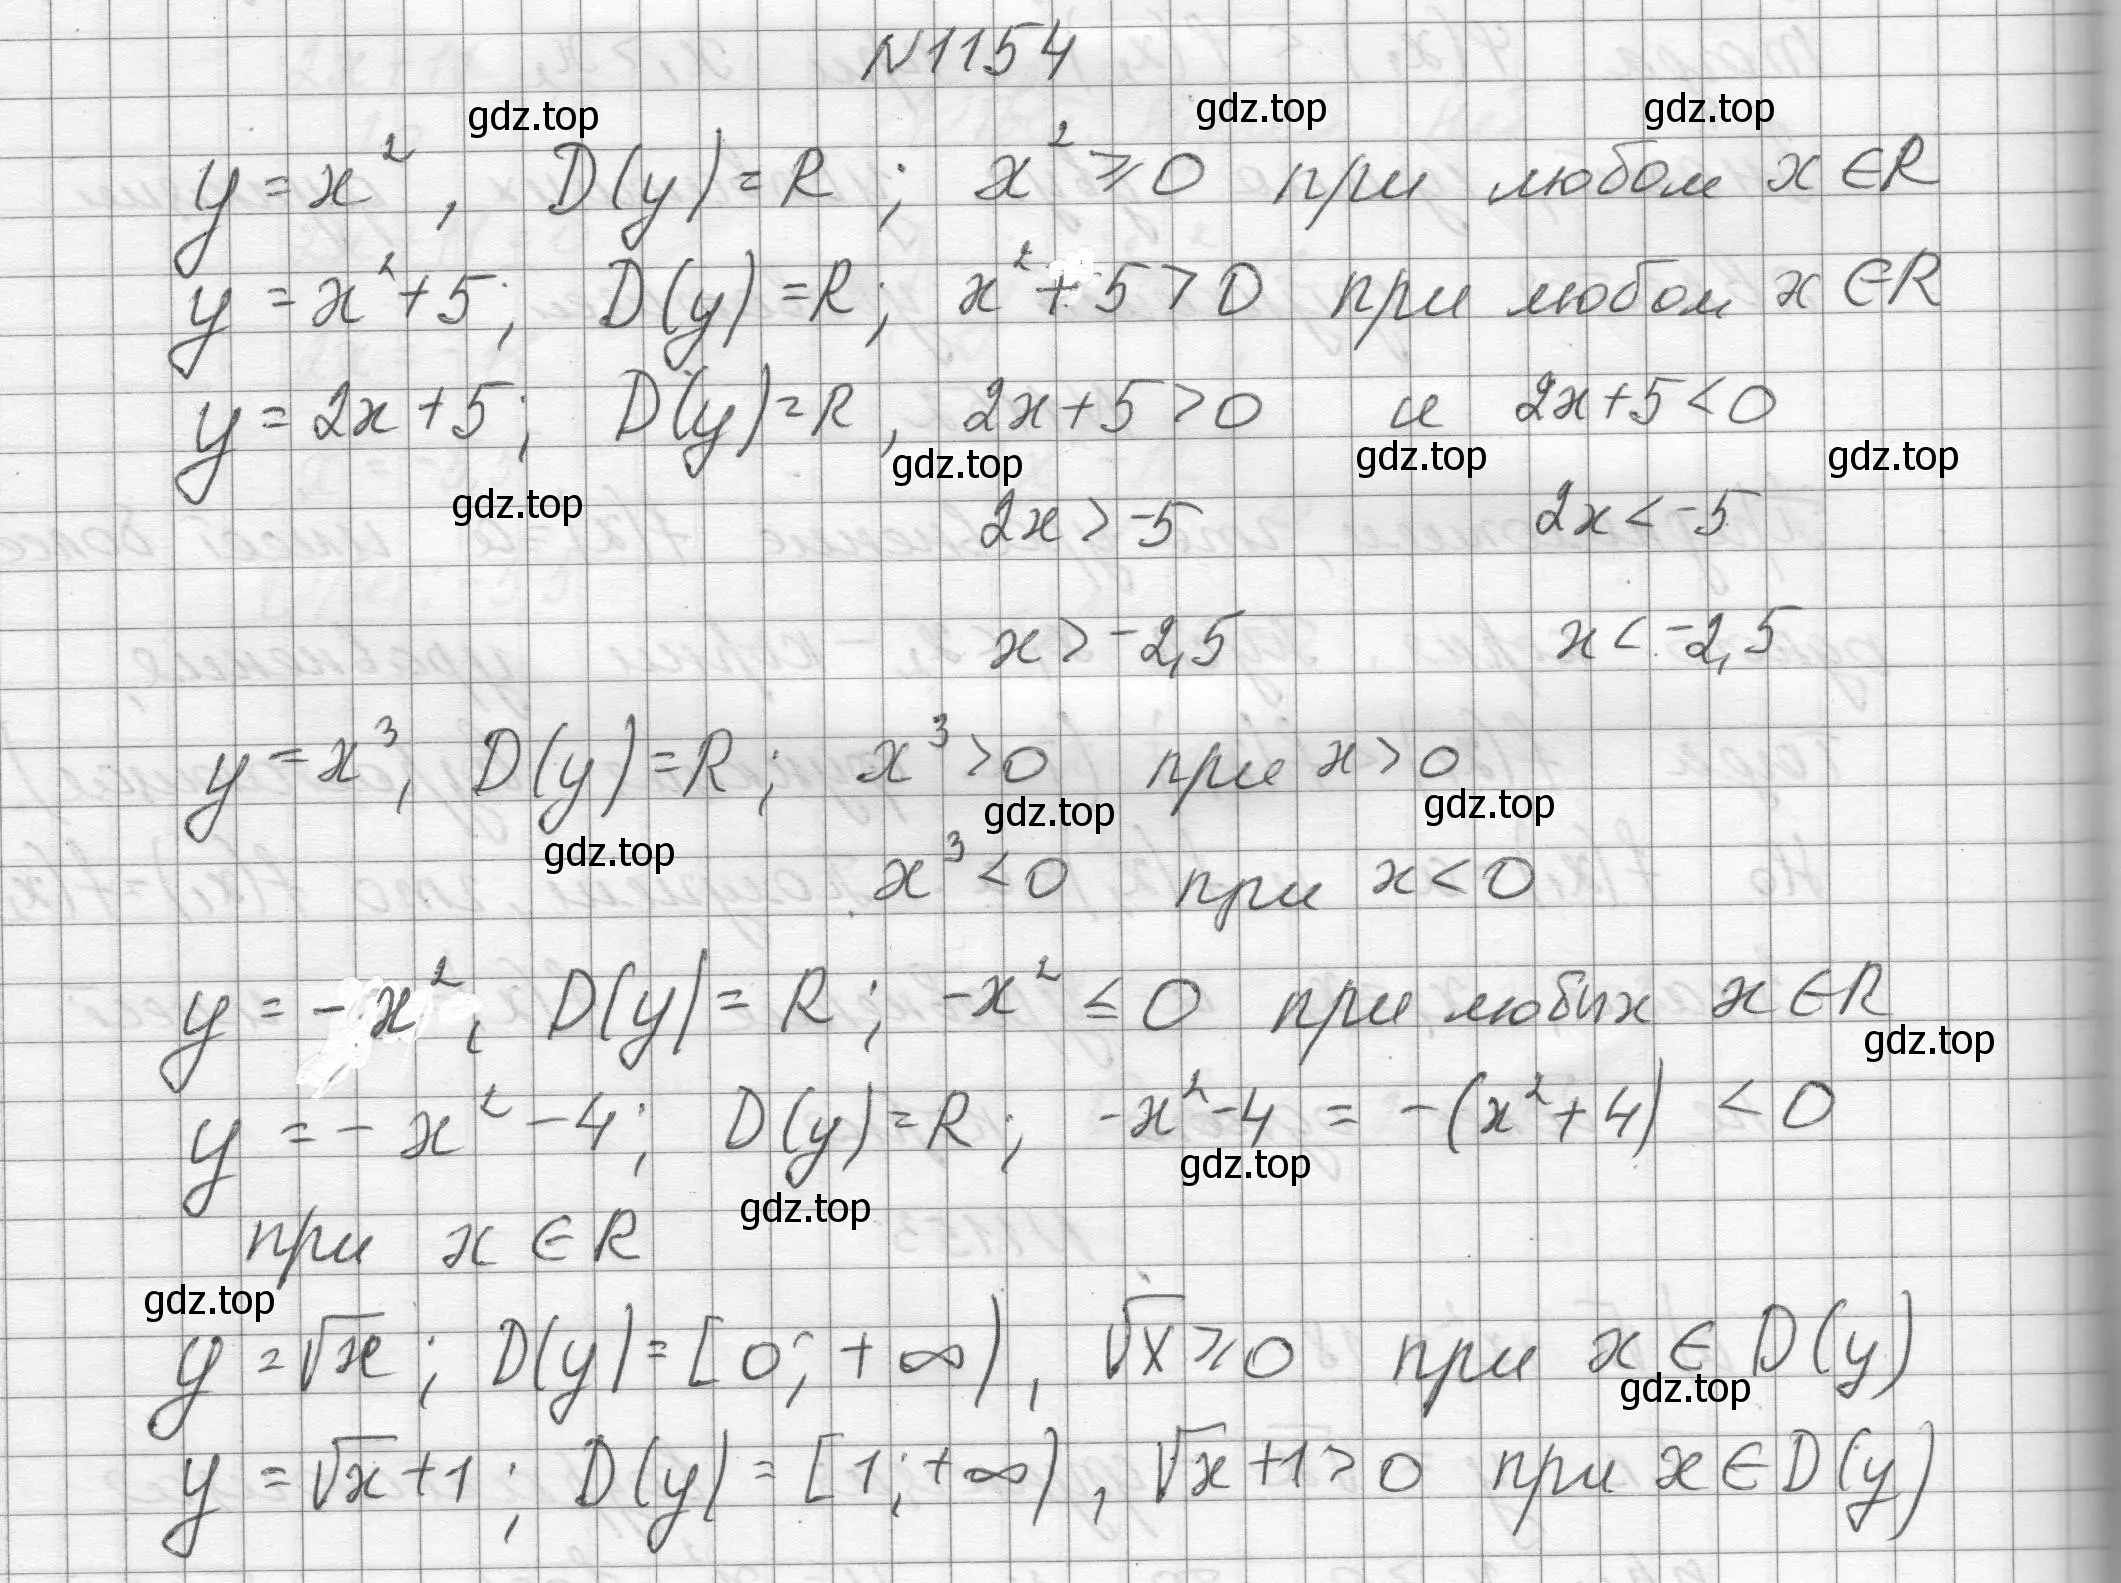 N1154
gdz.top gdz.top gdz.top
y = x², D(y) = R; x² ⩾ 0 при любом x ∈ R
y = x² + 5; D(y) = R; x² + 5 > 0 при любом x ∈ R
y = 2x + 5; D(y) = R, 2x + 5 > 0 и 2x + 5 < 0
gdz.top gdz.top gdz.top gdz.top
2x > -5 2x < -5
x > -2,5 x < -2,5
y = x³, D(y) = R; x³ > 0 при x > 0
gdz.top gdz.top gdz.top
x³ < 0 при x < 0
y = -x², D(y) = R; -x² ≤ 0 при любых x ∈ R
gdz.top
y = -x² - 4; D(y) = R; -x² - 4 = -(x² + 4) < 0
gdz.top gdz.top
при x ∈ R
gdz.top
y = √x; D(y) = [0; +∞), √x ⩾ 0 при x ∈ D(y)
gdz.top
y = √x + 1; D(y) = [1; +∞), √x + 1 > 0 при x ∈ D(y)